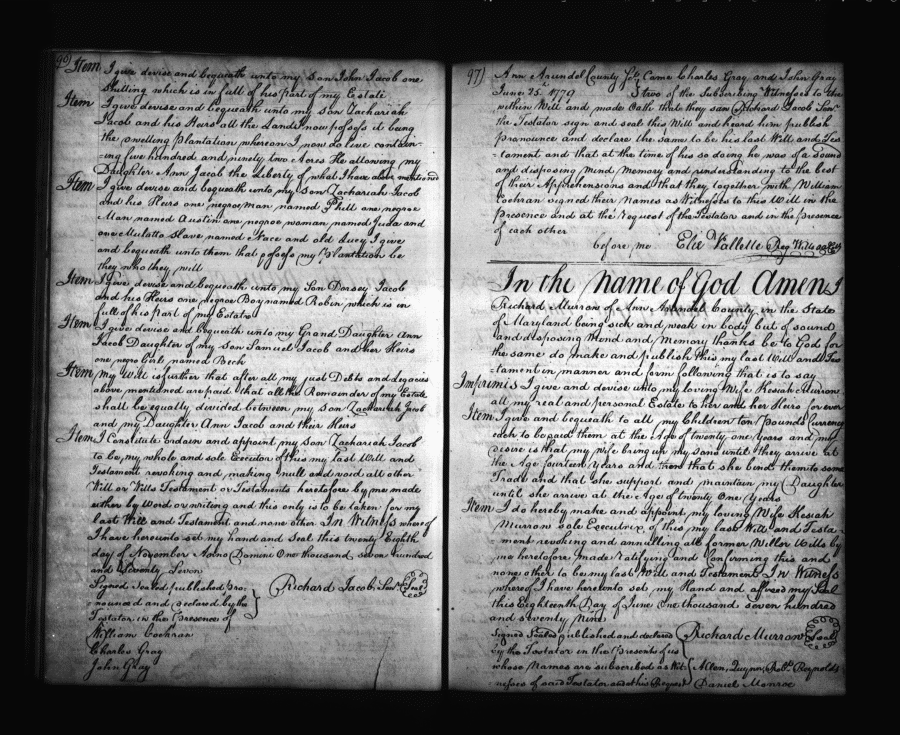 96)
Item I give devise and bequeath unto my Son John Jacob one
Shilling which is in full of his part of my Estate
Item I give devise and bequeath unto my Son Zachariah
Jacob and his Heirs all the Lands I now possess it being
the dwelling Plantation whereon I now do live contain-
-ing five hundred and ninety two Acres He allowing my
Daughter Ann Jacob the Liberty of what I have above mentioned
Item I give devise and bequeath unto my Son Zachariah Jacob
and his Heirs one negroe man named Phill one negroe
Man named Austin one negroe woman named Juda and
one Mulatto Slave named Nace and old Lucy I give
and bequeath unto them that possess my Plantation be
they who they will
Item I give devise and bequeath unto my Son Dorsey Jacob
and his Heirs one negroe Boy named Robin which is in
full of his part of my Estate
Item I give devise and bequeath unto my Grand Daughter Ann
Jacob Daughter of my Son Samuel Jacob and her Heirs
one negro Girl named Beck
Item my Will is further that after all my just Debts and Legacies
above mentioned are paid that all the Remainder of my Estate
shall be equally divided between my Son Zachariah Jacob
and my Daughter Ann Jacob and their Heirs
Item I Constitute ordain and appoint my Son Zachariah Jacob
to be my whole and sole Executor of this my last Will and
Testament revoking and making null and void all other
Will or Wills Testament or Testaments heretofore by me made
either by Word or writing and this only is to be taken for my
last Will and Testament and none other In Witness whereof
I have hereunto set my hand and Seal this twenty Eighth
day of November Anno Domini One thousand seven hundred
and Seventy Seven
Signed Sealed published pro-
nounced and declared by the
Testator in the Presences of
Richard Jacob Senr Seal
William Cochran
Charles Gray
John Gray
97)
Ann Arundel County Sct Came Charles Gray and John Gray
June 25. 1779 two of the Subscribing Witnesses to the
within Will and made Oath that they saw Richard Jacob Senr
the Testator sign and seal this Will and heard him publish
pronounce and declare the same to be his last Will and Tes
tament and that at the time of his so doing he was of a Sound
and disposing Mind Memory and understanding to the best
of their Apprehensions and that they together with William
Cochran signed their Names as Witnesses to this Will in the
presence and at the request of the Testator and in the presence
of each other
before me Elie Vallette Reg Wills
In the Name of God Amen I
Richard Murrow of Ann Arundel County in the State
of Maryland being sick and weak in body but of sound
and disposing Mind and Memory thanks be to God for
the same do make and publish this my last Will and Tes
tament in manner and form following that is to say
Imprimis I give and devise unto my loving Wife Kesiah Murrow
all my real and personal Estate to her and her Heirs for ever
Item I give and bequeath to all my Children ten Pounds Currency
each to be paid them at the Age of twenty one years and my
desire is that my Wife bring up my Sons until they arrive at
the Age fourteen years and then that she bend them to some
Trade and that she support and maintain my Daughter
until she arrive at the Age of twenty One years
Item I do hereby make and appoint my loving Wife Kesiah
Murrow sole Executrix of this my last Will and Testa
ment revoking and annulling all former Will or Wills by
me heretofore made Ratifying and Confirming this and
none other to be my last Will and Testament In Witness
whereof I have hereunto set my Hand and affixed my Seal
this Eighteenth Day of June One thousand seven hundred
and seventy Nine
Signed Sealed published and declared
by the Testator in the Presents of us
whose Names are subscribed as Wit-
nesses of said Testator and at his Request
Richard Murrow Seal
Allen Quynn, Robt Reynolds
Daniel Monroe